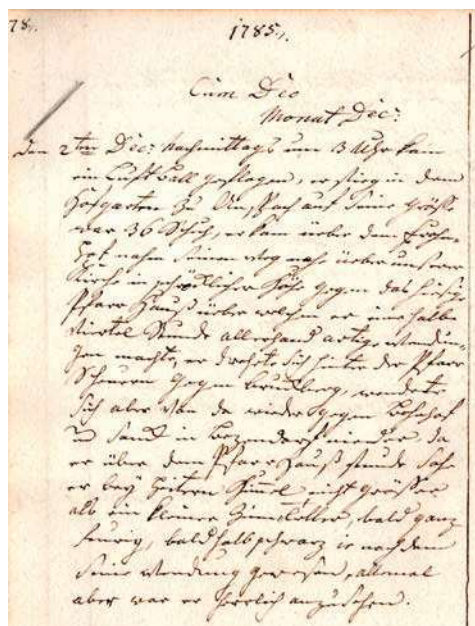 78.
1785.
Cum Deo
Monat Dec:
Den 2ten Dec: Nachmittags um 3 Uhr kam
ein Luft Ball geflogen, er stieg in dem
Hofgarten zu On, Bach auf seine Größe
war 36 Schuh, er kam ueber dem
nahm seinen weg nahe ueber unsere
Kirche in schröcklicher Höhe gegen das hiesige
Pfarr Hauß ueber welchem er eine halbe
viertel Stunde allerhand artige wendun-
gen machte, er drehete sich hinter der Pfarr
Scheuern gegen Bruckberg, wendete
sich aber von da wieder gegen
u. sank in Bezendorf nieder, da
er über dem Pfarr Hauß stunde sahe
er bey heitern Himmel nicht größer
als ein kleiner Zinnteller, bald ganz
feurig, bald halb schwarz ie nachdem
seine wendung gewesen, allemal
aber war er herrlich anzusehen.